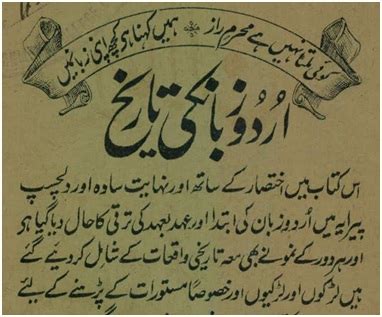 کوئی ملتا نہیں ہے محرم راز ہمیں کہنا ہی کچھ اپنی زبانمیں
اُردو زبانکی تاریخ
اس کتاب میں اختصار کے ساتھ اور نہایت سادہ اور دلچسپ
پیرایہ میں اُردو زبان کی ابتدا اور عہد بعہد کی ترقی کا حال دیا گیا ہی
اور ہر دور کے نمونے بھی معہ تاریخی واقعات کے شامل کر دیئے گئے
ہیں لڑکوں اور لڑکیوں اور خصوصاً مستورات کے پڑھنے کے لیئے